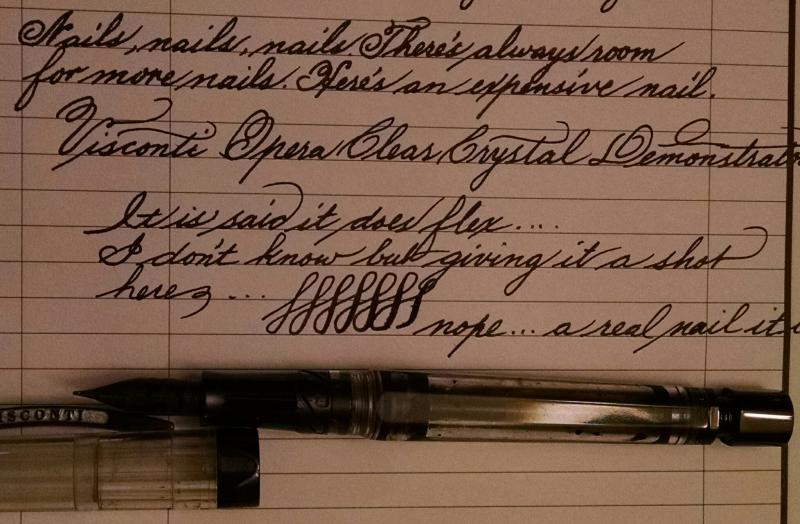 Nails, nails, nails. There's always room
for more nails. Here's an expensive nail.
Visconti Opera Clear Crystal Demonstrator
It is said it does flex....
I don't know but giving it a shot
here ...
nope... a real nail it
VISCONTI